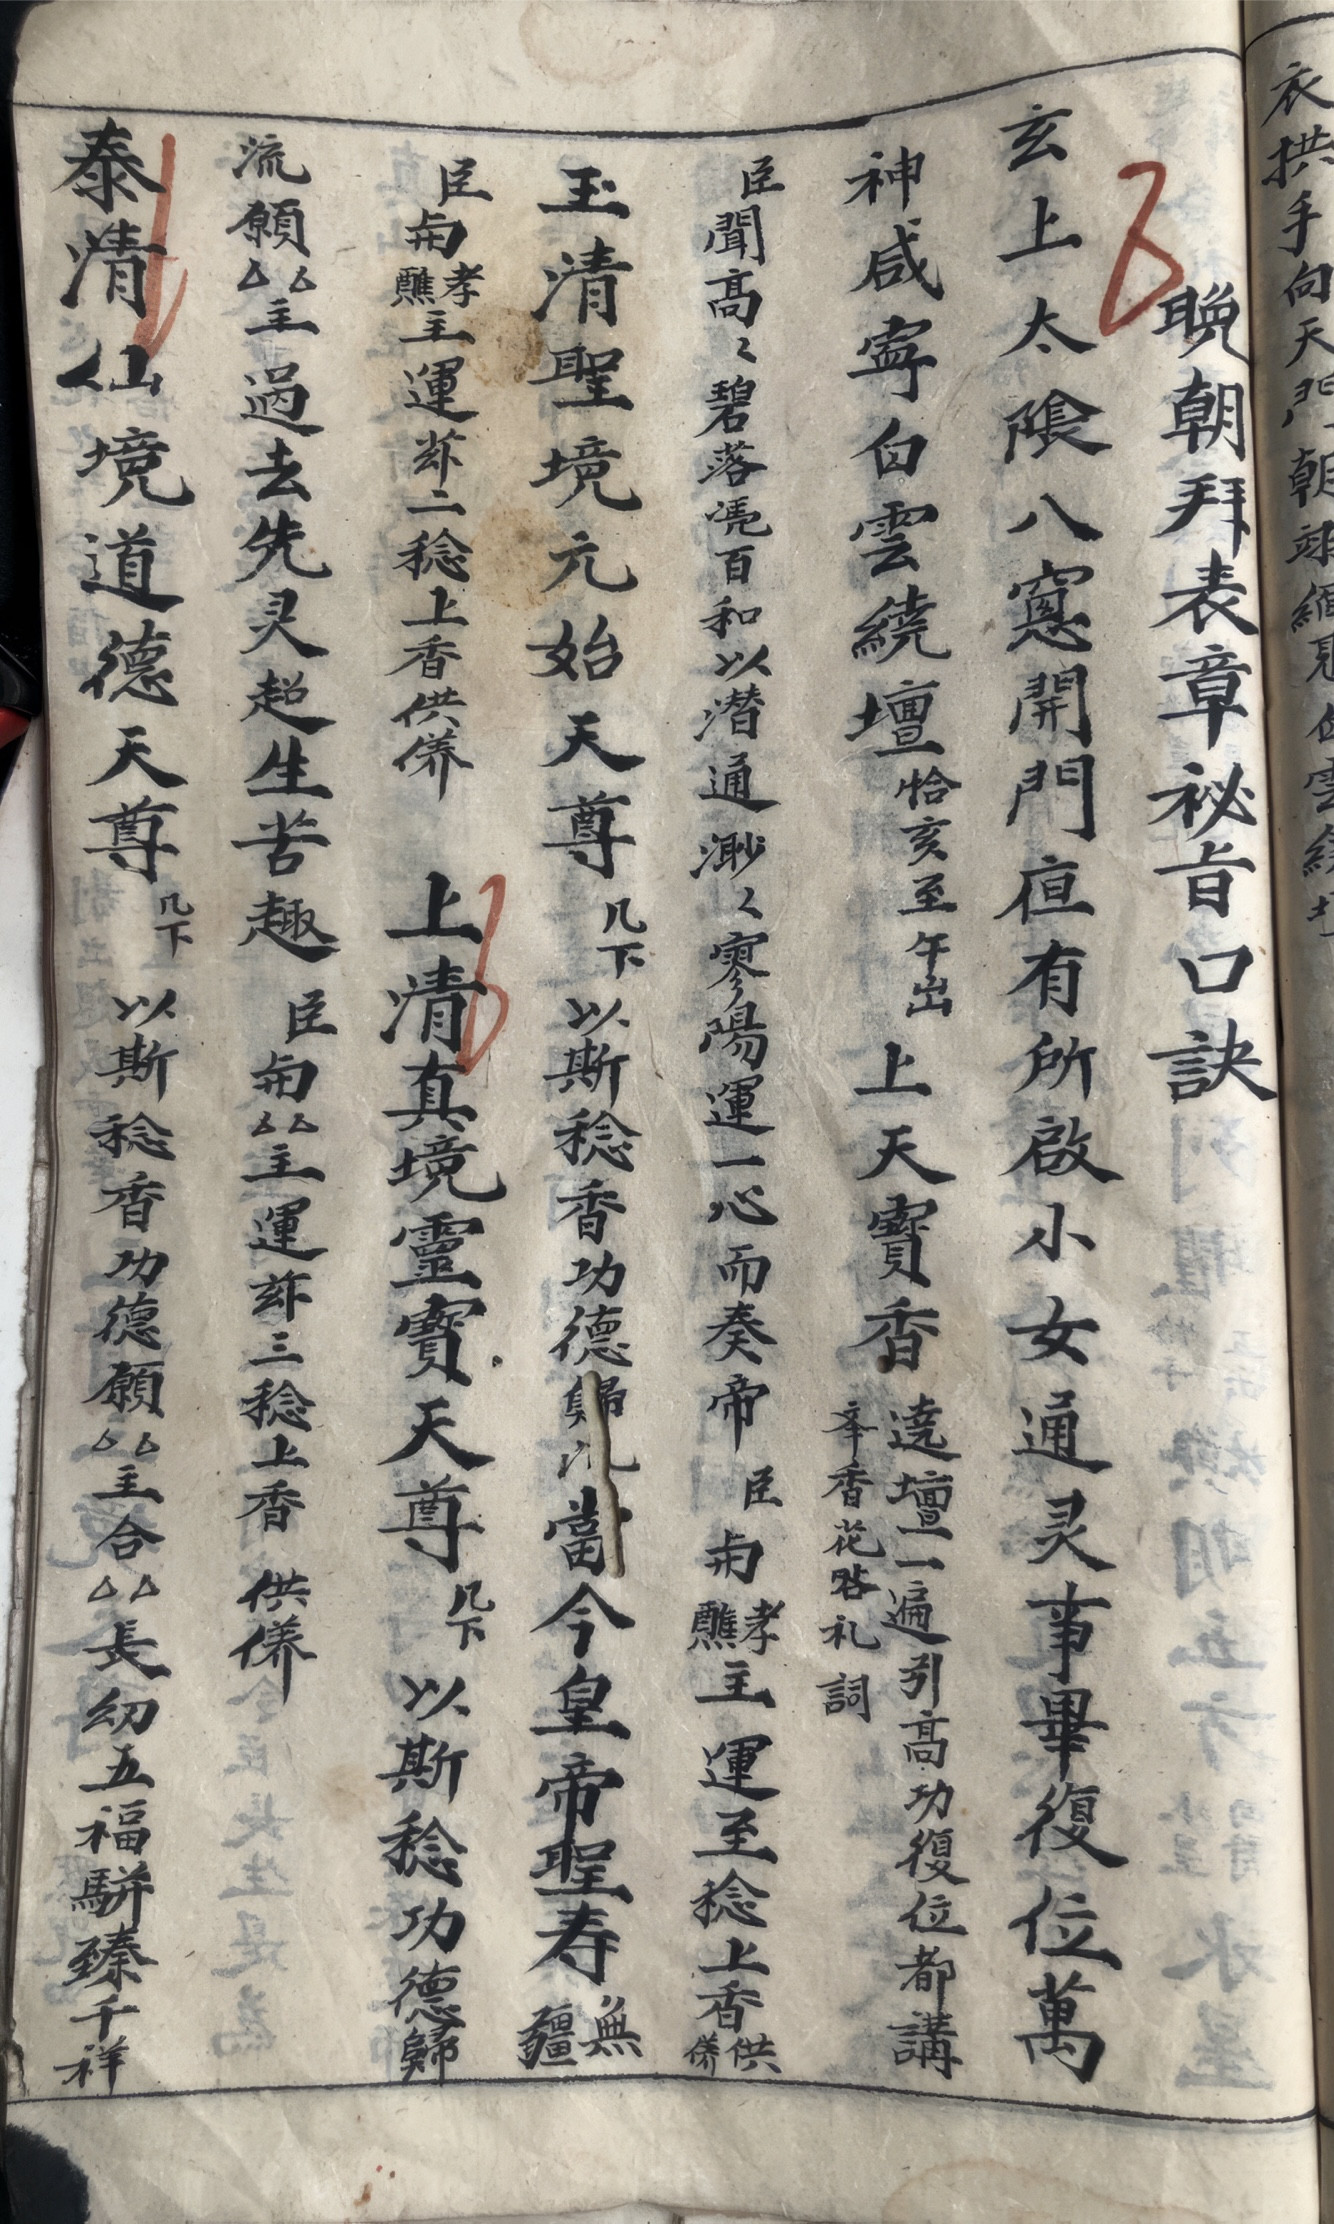 衣拱手向天門朝
晩朝拜表章祕旨口訣
玄上太隂八窻開門亘有所啟小女通灵事畢復位萬
神咸寧白雲繞壇恰亥至午出上天寶香遶壇一遍引高功復位都講
奉香花畧礼詞
臣聞高〻碧落凴百和以潛通渺〻寥陽運一心而奏帝臣為孝醮主運至稔上香供養
玉清聖境元始天尊几下以斯稔香功德歸當今皇帝聖寿無疆
臣為孝醮主運玆二稔上香供養上清真境靈寶天尊几下以斯稔功德歸
流願厶厶主過去先灵超生苦趣臣為厶厶主運玆三稔上香供養
泰清仙境道德天尊几下以斯稔香功德願厶厶主合厶厶長幼五福駢臻千祥